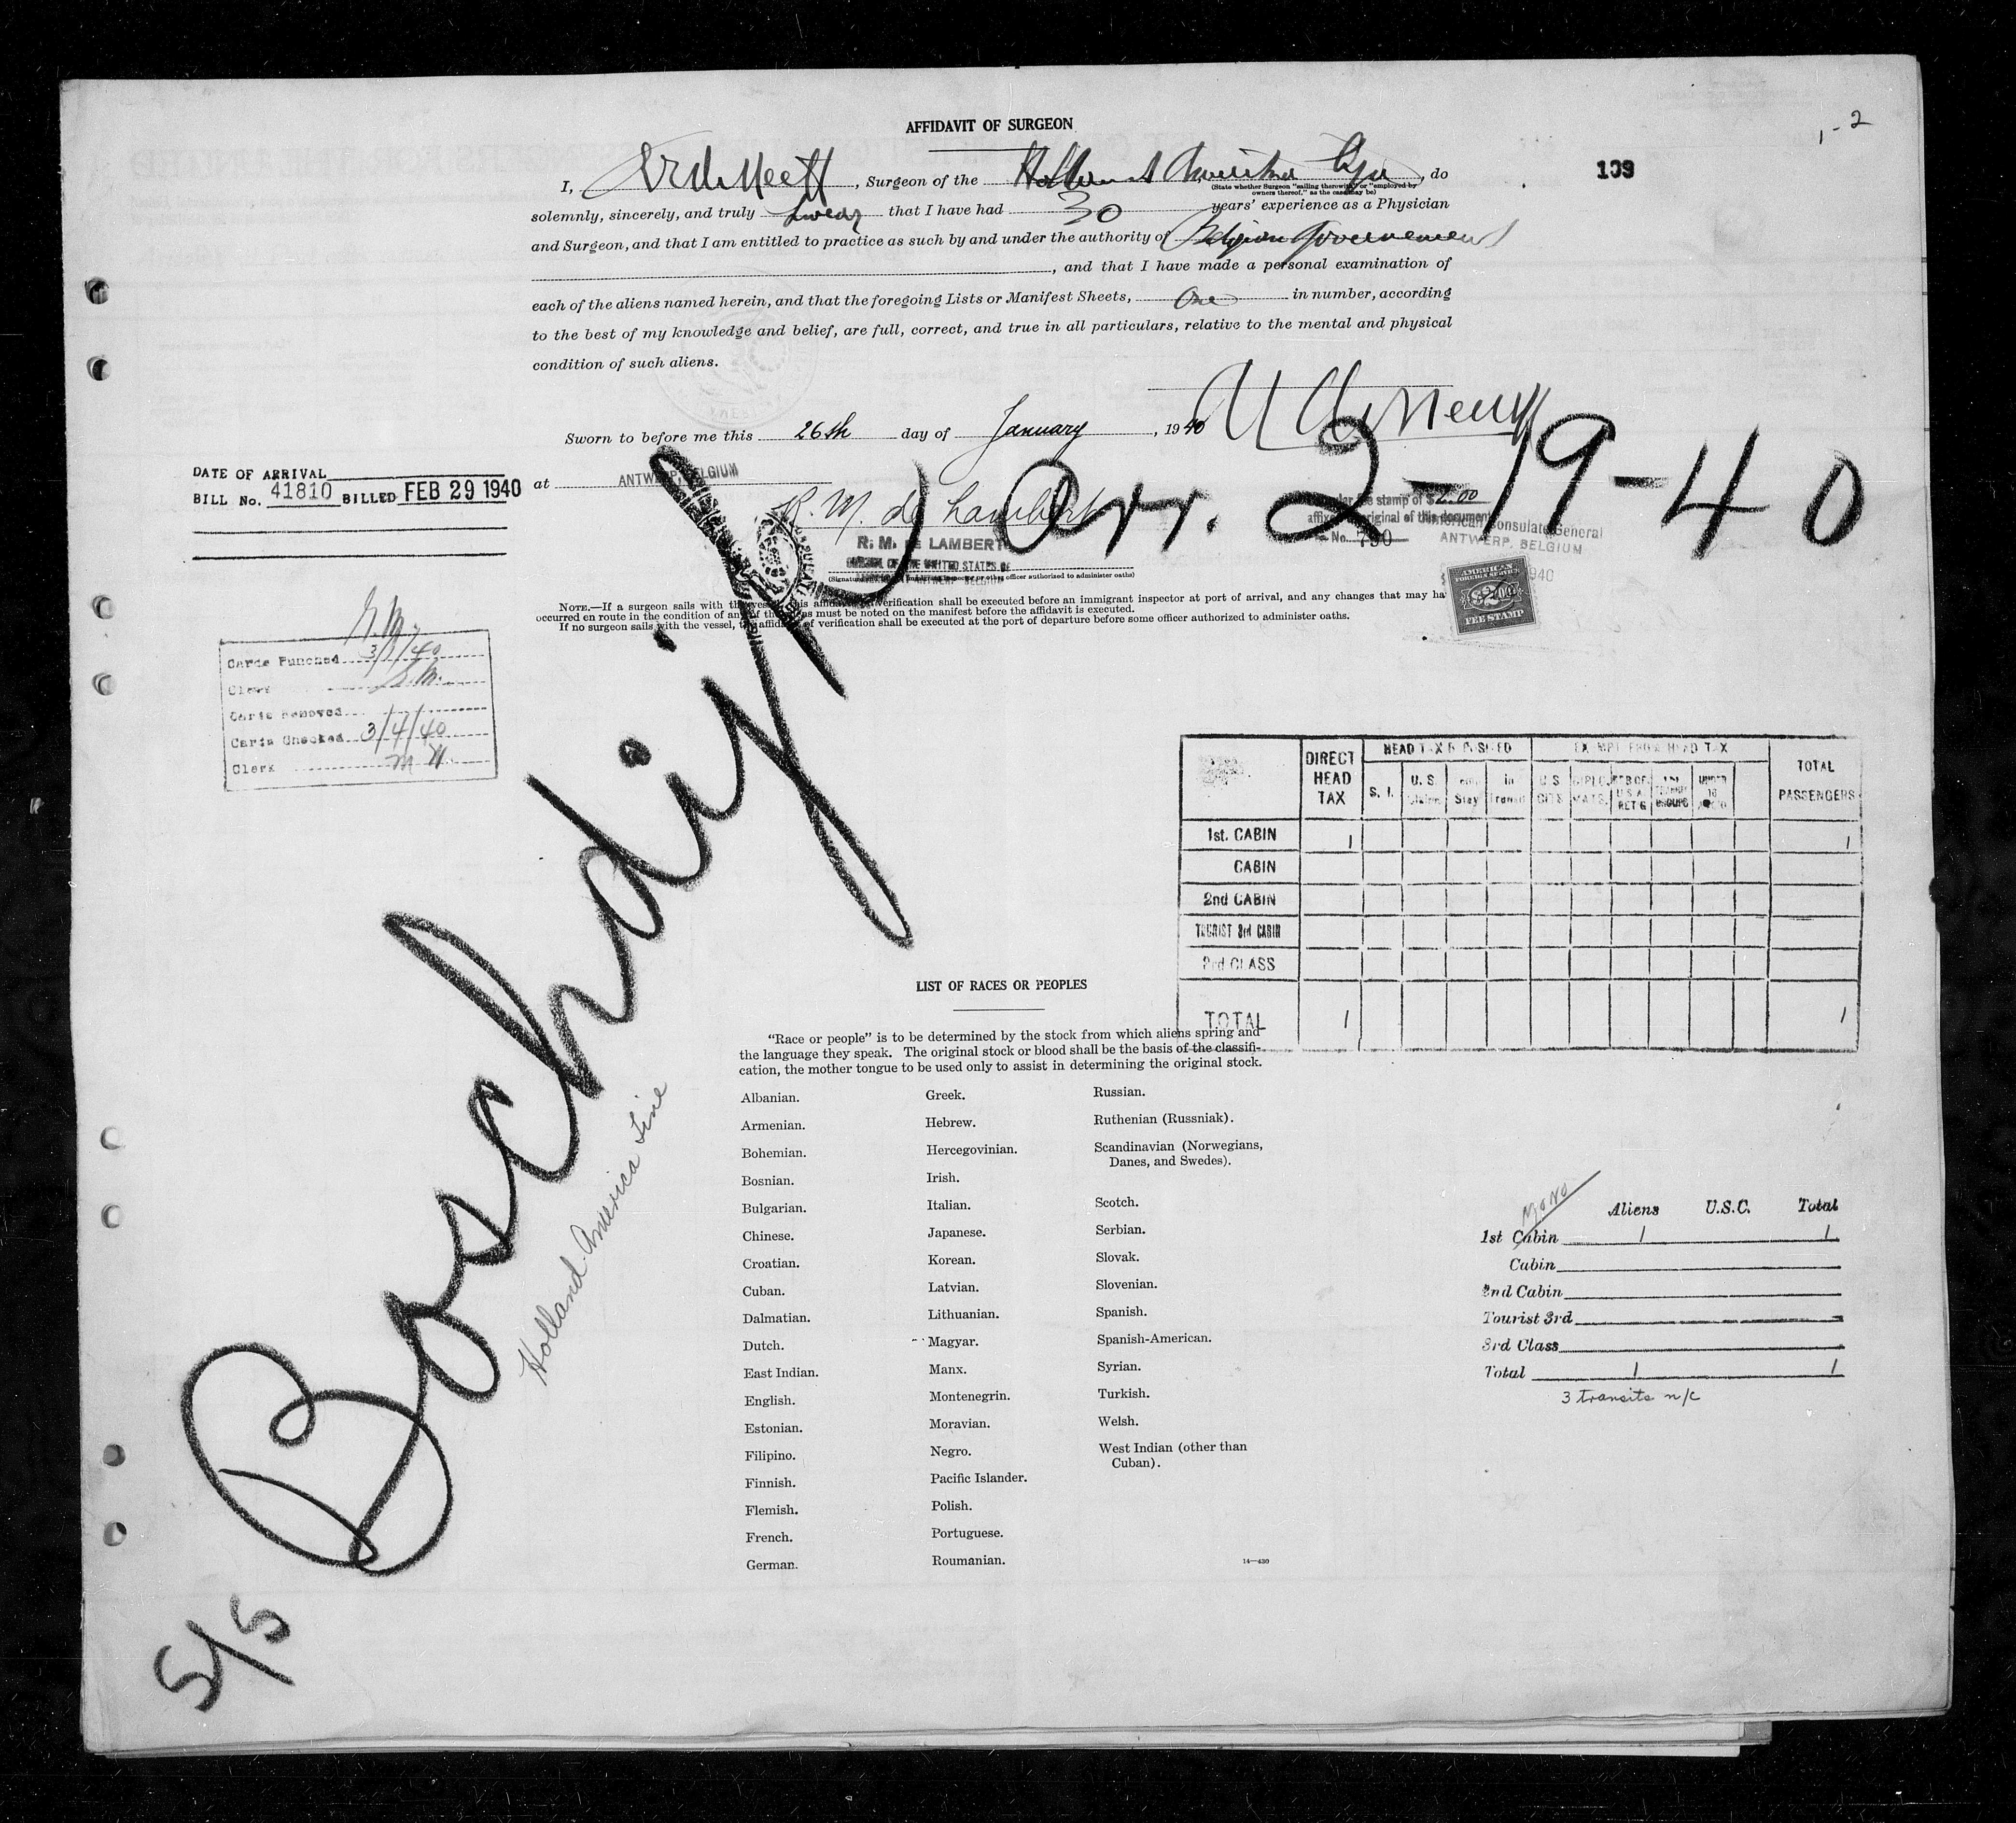 AFFIDAVIT OF SURGEON
1-2
109
I, , Surgeon of the Holland America Lijn , do
(State whether Surgeon "sailing therewith" or "employed by
owners thereof," as the case may be)
solemnly, sincerely, and truly swear that I have had 30 years' experience as a Physician
and Surgeon, and that I am entitled to practice as such by and under the authority of Belgian Governement
, and that I have made a personal examination of
each of the aliens named herein, and that the foregoing Lists or Manifest Sheets, One in number, according
to the best of my knowledge and belief, are full, correct, and true in all particulars, relative to the mental and physical
condition of such aliens.
Sworn to before me this 26th day of January , 1940
at ANTWERP, BELGIUM
DATE OF ARRIVAL
BILL No. 41810 BILLED FEB 29 1940
Arr. 2-19-40
R. M. de Lambert
R. M. de LAMBERT
(Signature immigrant inspector or other officer authorized to administer oaths)
stamp of $2.00
original of this document
No. 790
American Consulate General
ANTWERP, BELGIUM
1940
AMERICAN
FOREIGN SERVICE
$2.00
FEE STAMP
NOTE.—If a surgeon sails with the vessel, this affidavit verification shall be executed before an immigrant inspector at port of arrival, and any changes that may ha
occurred en route in the condition of any of the aliens must be noted on the manifest before the affidavit is executed.
If no surgeon sails with the vessel, the affidavit of verification shall be executed at the port of departure before some officer authorized to administer oaths.
Cards Punched 3/1/40
Clerk
Cards Removed
Cards Checked 3/4/40
Clerk
S/S Boschdijk
Holland-America Line
DIRECT HEAD TAX
HEAD TAX DEPOSITED
EXEMPT FROM HEAD TAX
TOTAL PASSENGERS
S. I.
U. S.
Stay
in Transit
U S CITS
DIPLOMATS
RES OF U.S.A. RET'G
UNDER 16
1st. CABIN 1 1
CABIN
2nd CABIN
TOURIST 3rd CABIN
3rd CLASS
TOTAL 1 1
LIST OF RACES OR PEOPLES
"Race or people" is to be determined by the stock from which aliens spring and
the language they speak. The original stock or blood shall be the basis of the classifi-
cation, the mother tongue to be used only to assist in determining the original stock.
Albanian.
Armenian.
Bohemian.
Bosnian.
Bulgarian.
Chinese.
Croatian.
Cuban.
Dalmatian.
Dutch.
East Indian.
English.
Estonian.
Filipino.
Finnish.
Flemish.
French.
German.
Greek.
Hebrew.
Hercegovinian.
Irish.
Italian.
Japanese.
Korean.
Latvian.
Lithuanian.
Magyar.
Manx.
Montenegrin.
Moravian.
Negro.
Pacific Islander.
Polish.
Portuguese.
Roumanian.
Russian.
Ruthenian (Russniak).
Scandinavian (Norwegians,
Danes, and Swedes).
Scotch.
Serbian.
Slovak.
Slovenian.
Spanish.
Spanish-American.
Syrian.
Turkish.
Welsh.
West Indian (other than
Cuban).
14—430
Mono
Aliens U.S.C. Total
1st Cabin 1 1
Cabin
2nd Cabin
Tourist 3rd
3rd Class
Total 1 1
3 transits n/c